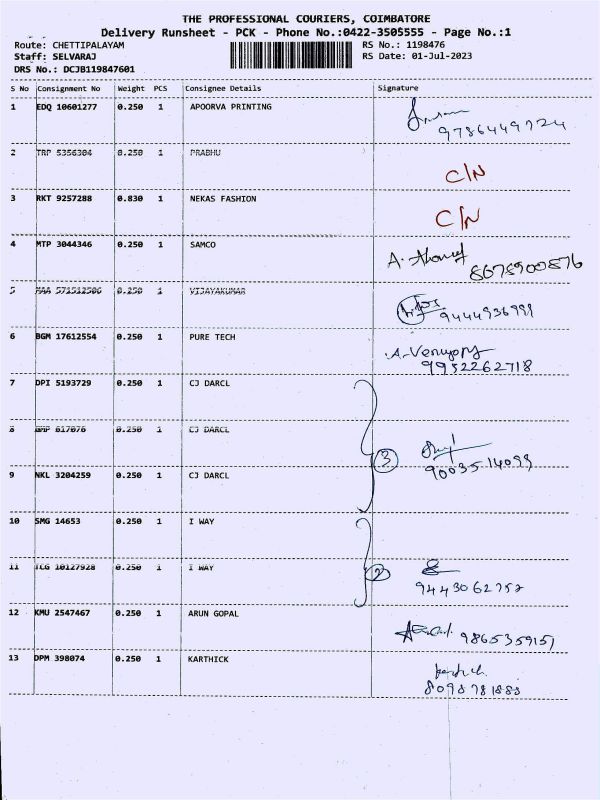 THE PROFESSIONAL COURIERS, COIMBATORE
Delivery Runsheet - PCK - Phone No.:0422-3505555 - Page No.:1
Route: CHETTIPALAYAM RS No.: 1198476
Staff: SELVARAJ RS Date: 01-Jul-2023
DRS No.: DCJB119847601
S No Consignment No Weight PCS Consignee Details Signature
1 EDQ 10601277 0.250 1 APOORVA PRINTING
9786449724
2 TRP 5356304 0.250 1 PRABHU
C/N
3 RKT 9257288 0.830 1 NEKAS FASHION
C/N
4 MTP 3044346 0.250 1 SAMCO
8678900876
5 MAA 571512506 0.250 1 VIJAYAKUMAR
9444936999
6 BGM 17612554 0.250 1 PURE TECH
9952262718
7 DPI 5193729 0.250 1 CJ DARCL
8 GMP 617076 0.250 1 CJ DARCL
3
9003514099
9 NKL 3204259 0.250 1 CJ DARCL
10 SMG 14653 0.250 1 I WAY
11 TCG 10127928 0.250 1 I WAY
2
9443062752
12 KMU 2547467 0.250 1 ARUN GOPAL
9865359151
13 DPM 398074 0.250 1 KARTHICK
8098781888